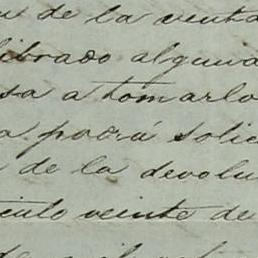 de la venta
librado alguna
sa a tomarlo
a podrá solic
de la devolu
iculo veinte de